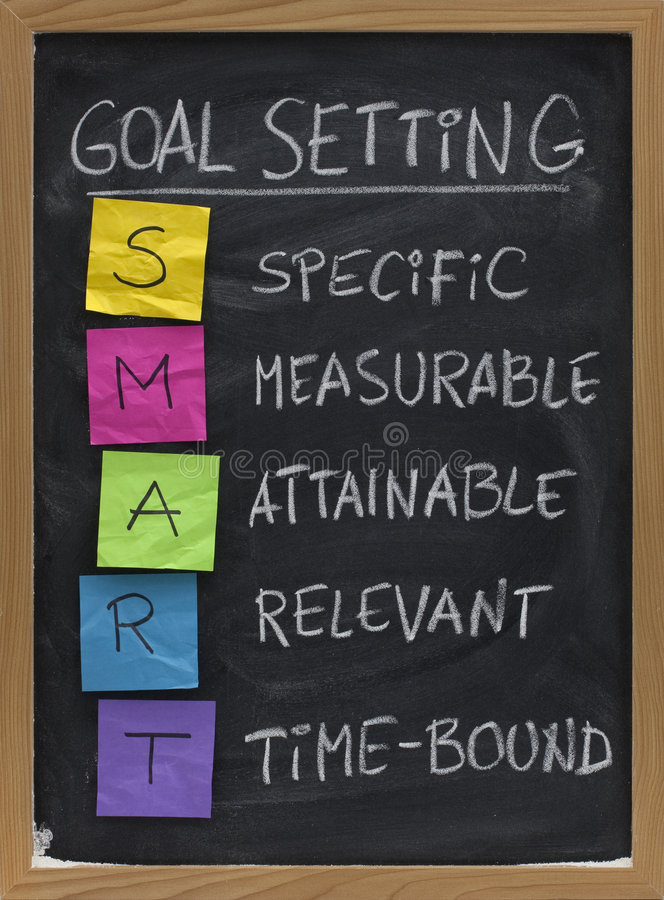 GOAL SETTING
S SPECIFIC
M MEASURABLE
A ATTAINABLE
R RELEVANT
T TIME-BOUND
dreamstime